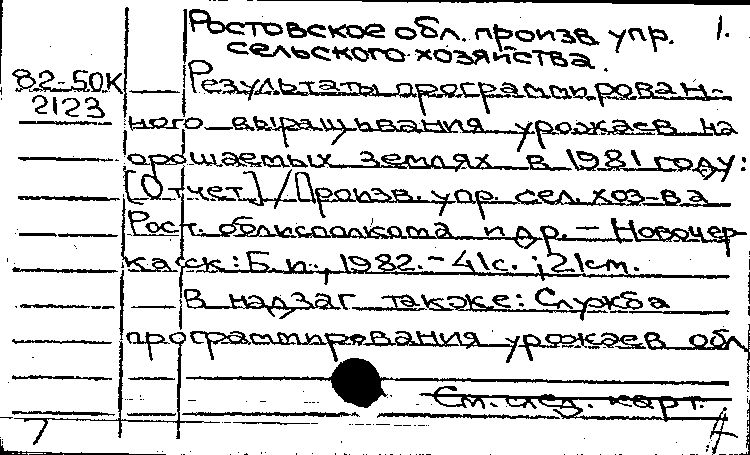 Ростовское обл. произв. упр. 1.
сельского хозяйства.
82-50К Результаты программирован-
2123 ного выращывания урожаев на
орошаемых землях в 1981 году:
[Отчет] / Произв. упр. сел. хоз-ва
Рост. облисполкома и др. – Новочер-
касск: Б. и., 1982. – 41с. ; 21см.
В надзаг также: Служба
программирования урожаев обл
См. след. карт.